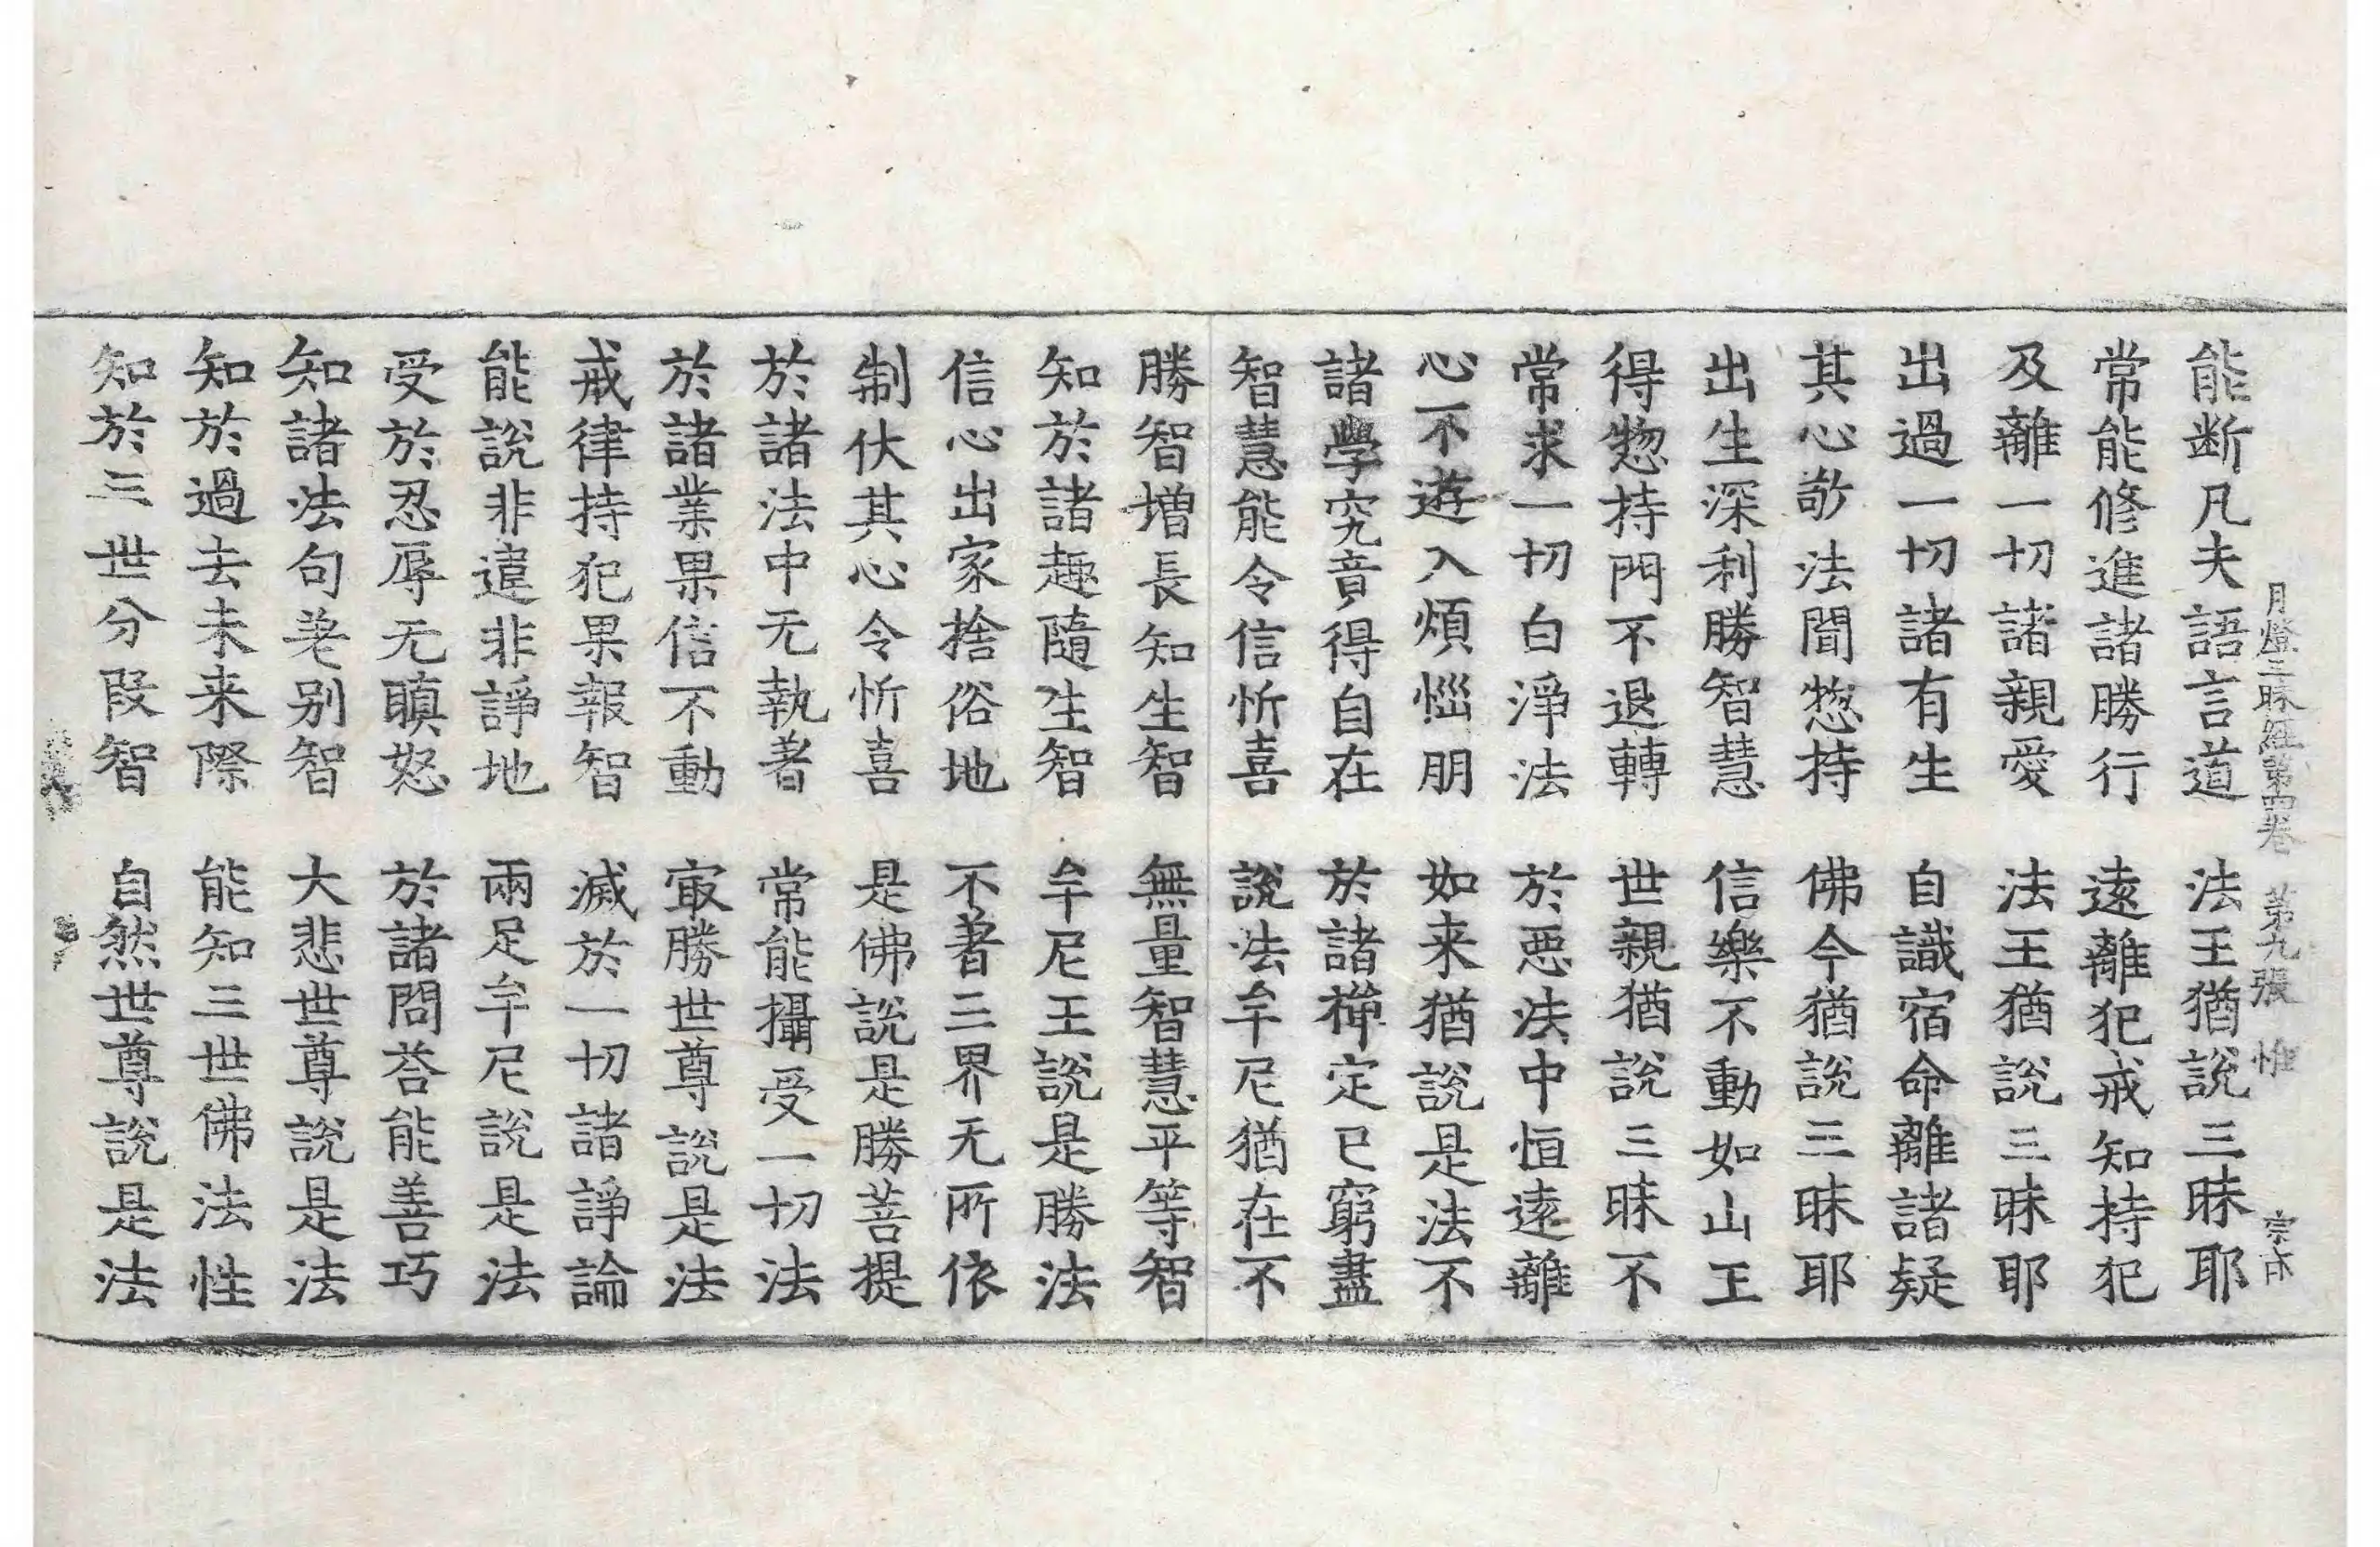 月燈三昧經第四卷　第九張　惟　宗亦
能断凡夫語言道　法王猶說三昧耶
常能修進諸勝行　遠離犯戒知持犯
及離一切諸親愛　法王猶說三昧耶
出過一切諸有生　自識宿命離諸疑
其心欲法聞惣持　佛今猶說三昧耶
出生深利勝智慧　信樂不動如山王
得惣持門不退轉　世親猶說三昧不
常求一切白淨法　於恶法中恒遠離
心不遊入煩惱朋　如来猶說是法不
諸學究竟得自在　於諸禪定已窮盡
智慧能令信忻喜　說法牟尼猶在不
勝智增長知生智　無量智慧平等智
知於諸趣隨生智　牟尼王說是勝法
信心出家捨俗地　不著三界无所依
制伏其心令忻喜　是佛說是勝菩提
於諸法中无執著　常能攝受一切法
於諸業果信不動　㝡勝世尊說是法
戒律持犯果報智　滅於一切諸諍論
能說非違非諍地　兩足牟尼說是法
受於忍辱无瞋怒　於諸問荅能善巧
知諸法句差别智　大悲世尊說是法
知於過去未来際　能知三世佛法性
知於三世分段智　自然世尊說是法